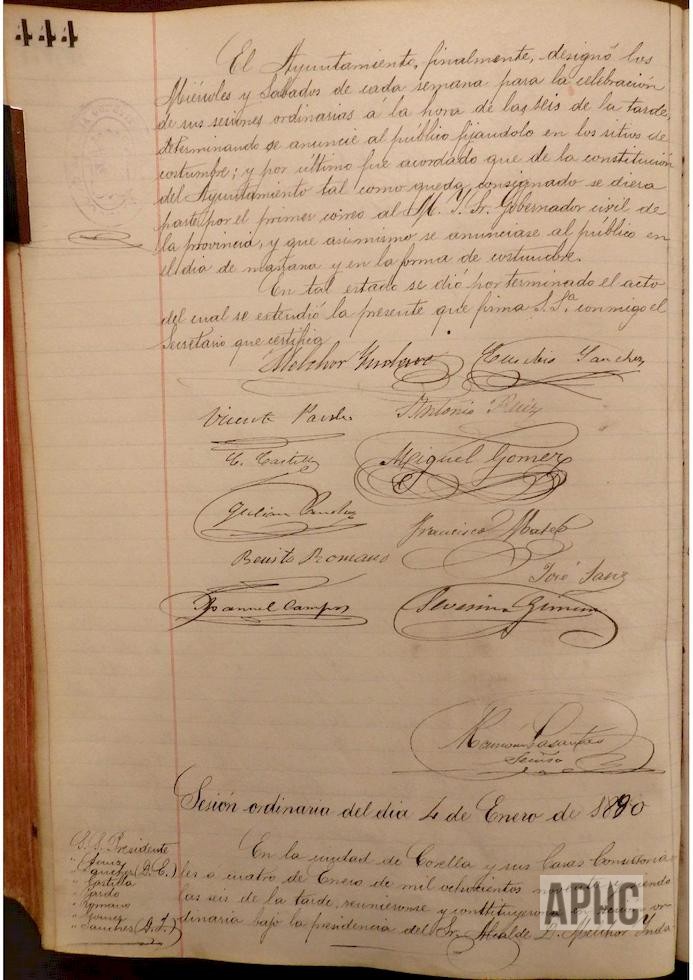 444
El Ayuntamiento, finalmente, designó los
Miércoles y Sábados de cada semana para la celebración
de sus sesiones ordinarias á la hora de las seis de la tarde,
determinando se anuncie al público fijandolo en los sitios de
costumbre; y por último fué acordado que de la constitución
del Ayuntamiento tal como queda consignado se diera
parte por el primer correo al M. Y. Sr. Gobernador civil de
la provincia, y que asimismo se anunciase al público en
el dia de mañana y en la forma de costumbre.
En tal estado se dió por terminado el acto
del cual se extendió la presente que firma S.Sª. conmigo el
Secretario que certifica
Melchor Eusebio Sanchez
Vicente Antonio Ruiz
C. Castilla Miguel Gomez
Julian Sanchez Francisco Mateo
Benito Romano José Sanz
Manuel Campos Severino Gimenez
Ramón
Sesión ordinaria del dia 4 de Enero de 1890
S. S. Presidente
" Sanchez (D. E.)
" Castilla
" Pardo
" Romano
" Gomez
" Sanchez (D. J.)
En la ciudad de Corella y sus Casas Consistoria
les a cuatro de Enero de mil ochocientos noventa siendo
las seis de la tarde, reunieronse y constituyeron en sesion or
dinaria bajo la presidencia del Sr. Alcalde D. Melchor Y.
APHC